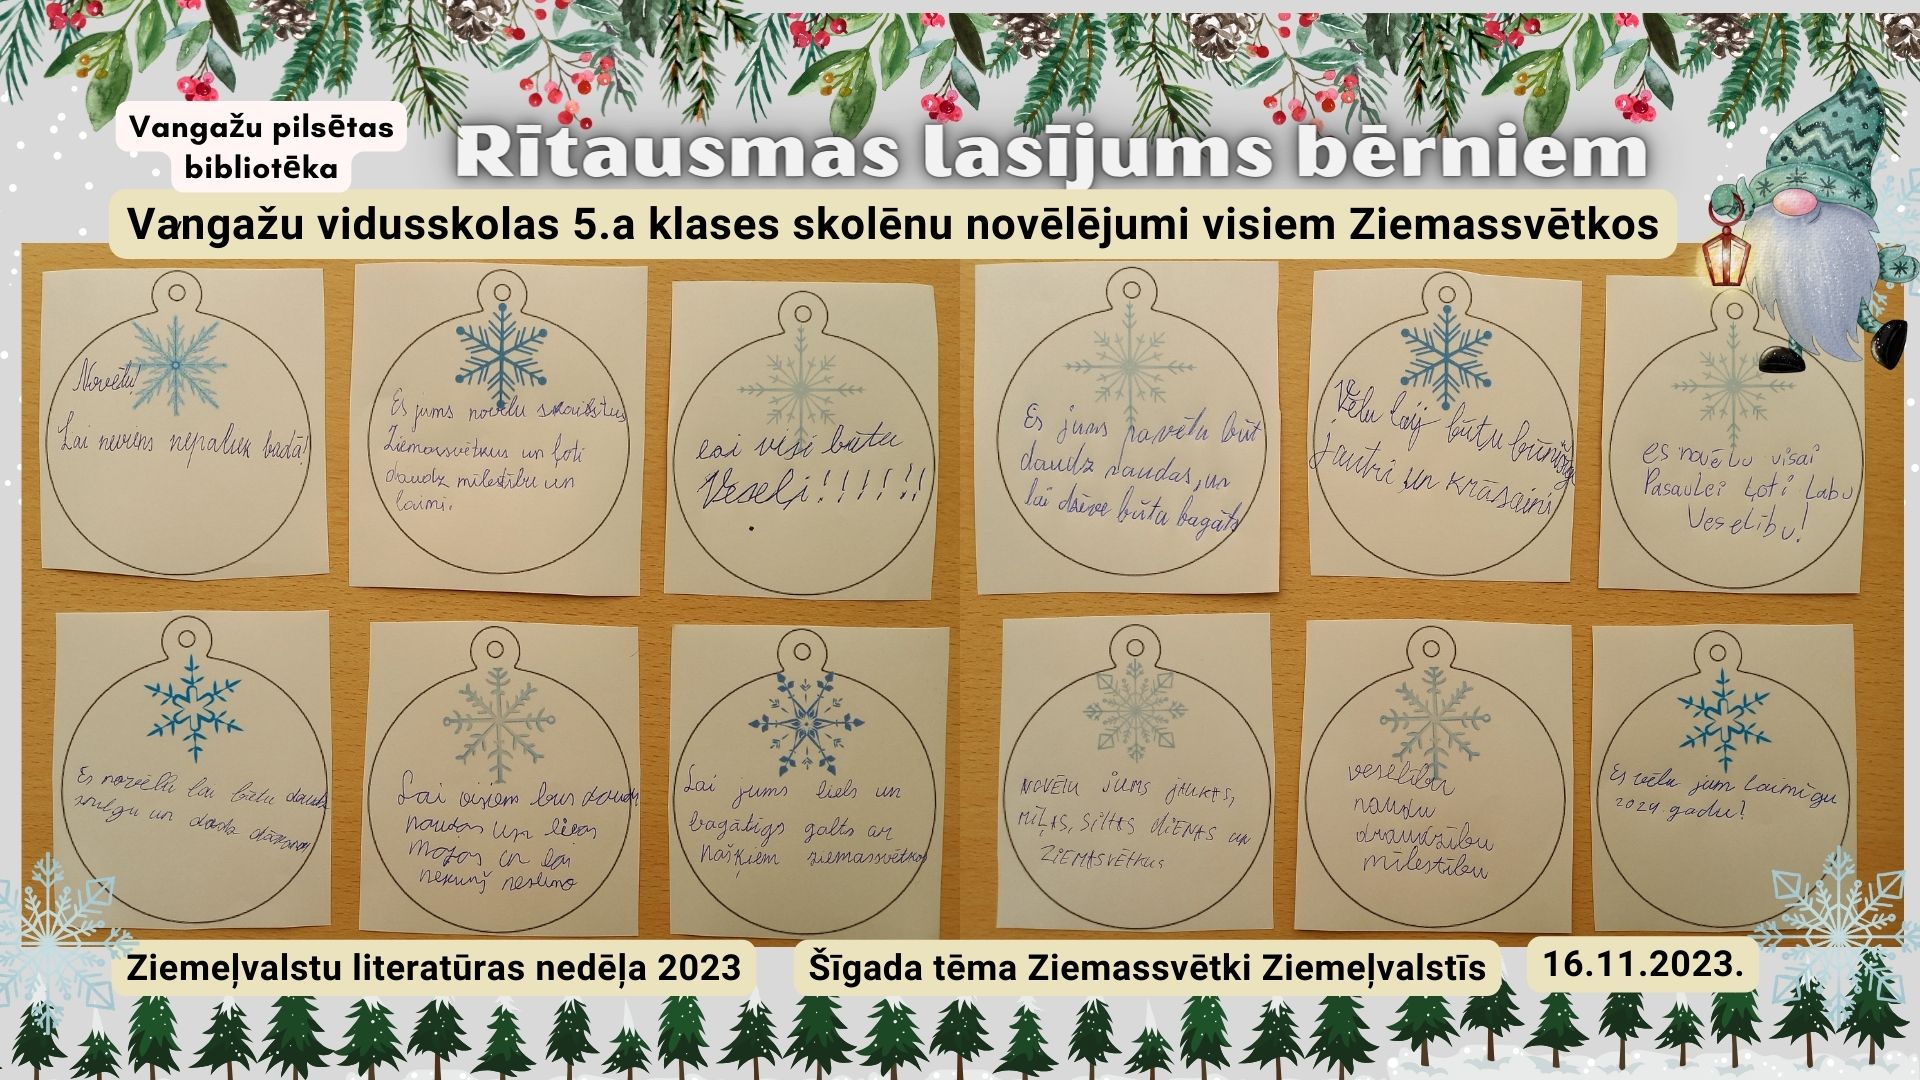 Vangažu pilsētas
bibliotēka
Rītausmas lasījums bērniem
Vangažu vidusskolas 5.a klases skolēnu novēlējumi visiem Ziemassvētkos
Novēlu!
Lai neviens nepaliek badā!
Es jums novēlu skaistus
Ziemassvētkus un ļoti
daudz mīlestību un
laimi.
Lai visi būtu
Veseli!!!!!!
Es jums navēlu būt
daudz naudas, un
lai dzīve būtu bagāta
Vēlu laij būtu
jautri un krāsaini
es novēlu visai
Pasaulei Ļoti Labu
Veselību!
Es novēlu lai būtu daudz
sniegu un
Lai visiem būs daudz
naudas un lielas
mājas un lai
nekurš neslimo
Lai jums liels un
bagātīgs galts ar
našķiem ziemassvētkos
NOVĒLU JUMS JAUKAS,
MĪĻAS, SILTAS DIENAS un
ZIEMASVĒTKUS
veselību
naudu
draudzību
mīlestību
Es vēlu jum laimīgu
2024. gadu!
Ziemeļvalstu literatūras nedēļa 2023
Šīgada tēma Ziemassvētki Ziemeļvalstīs
16.11.2023.